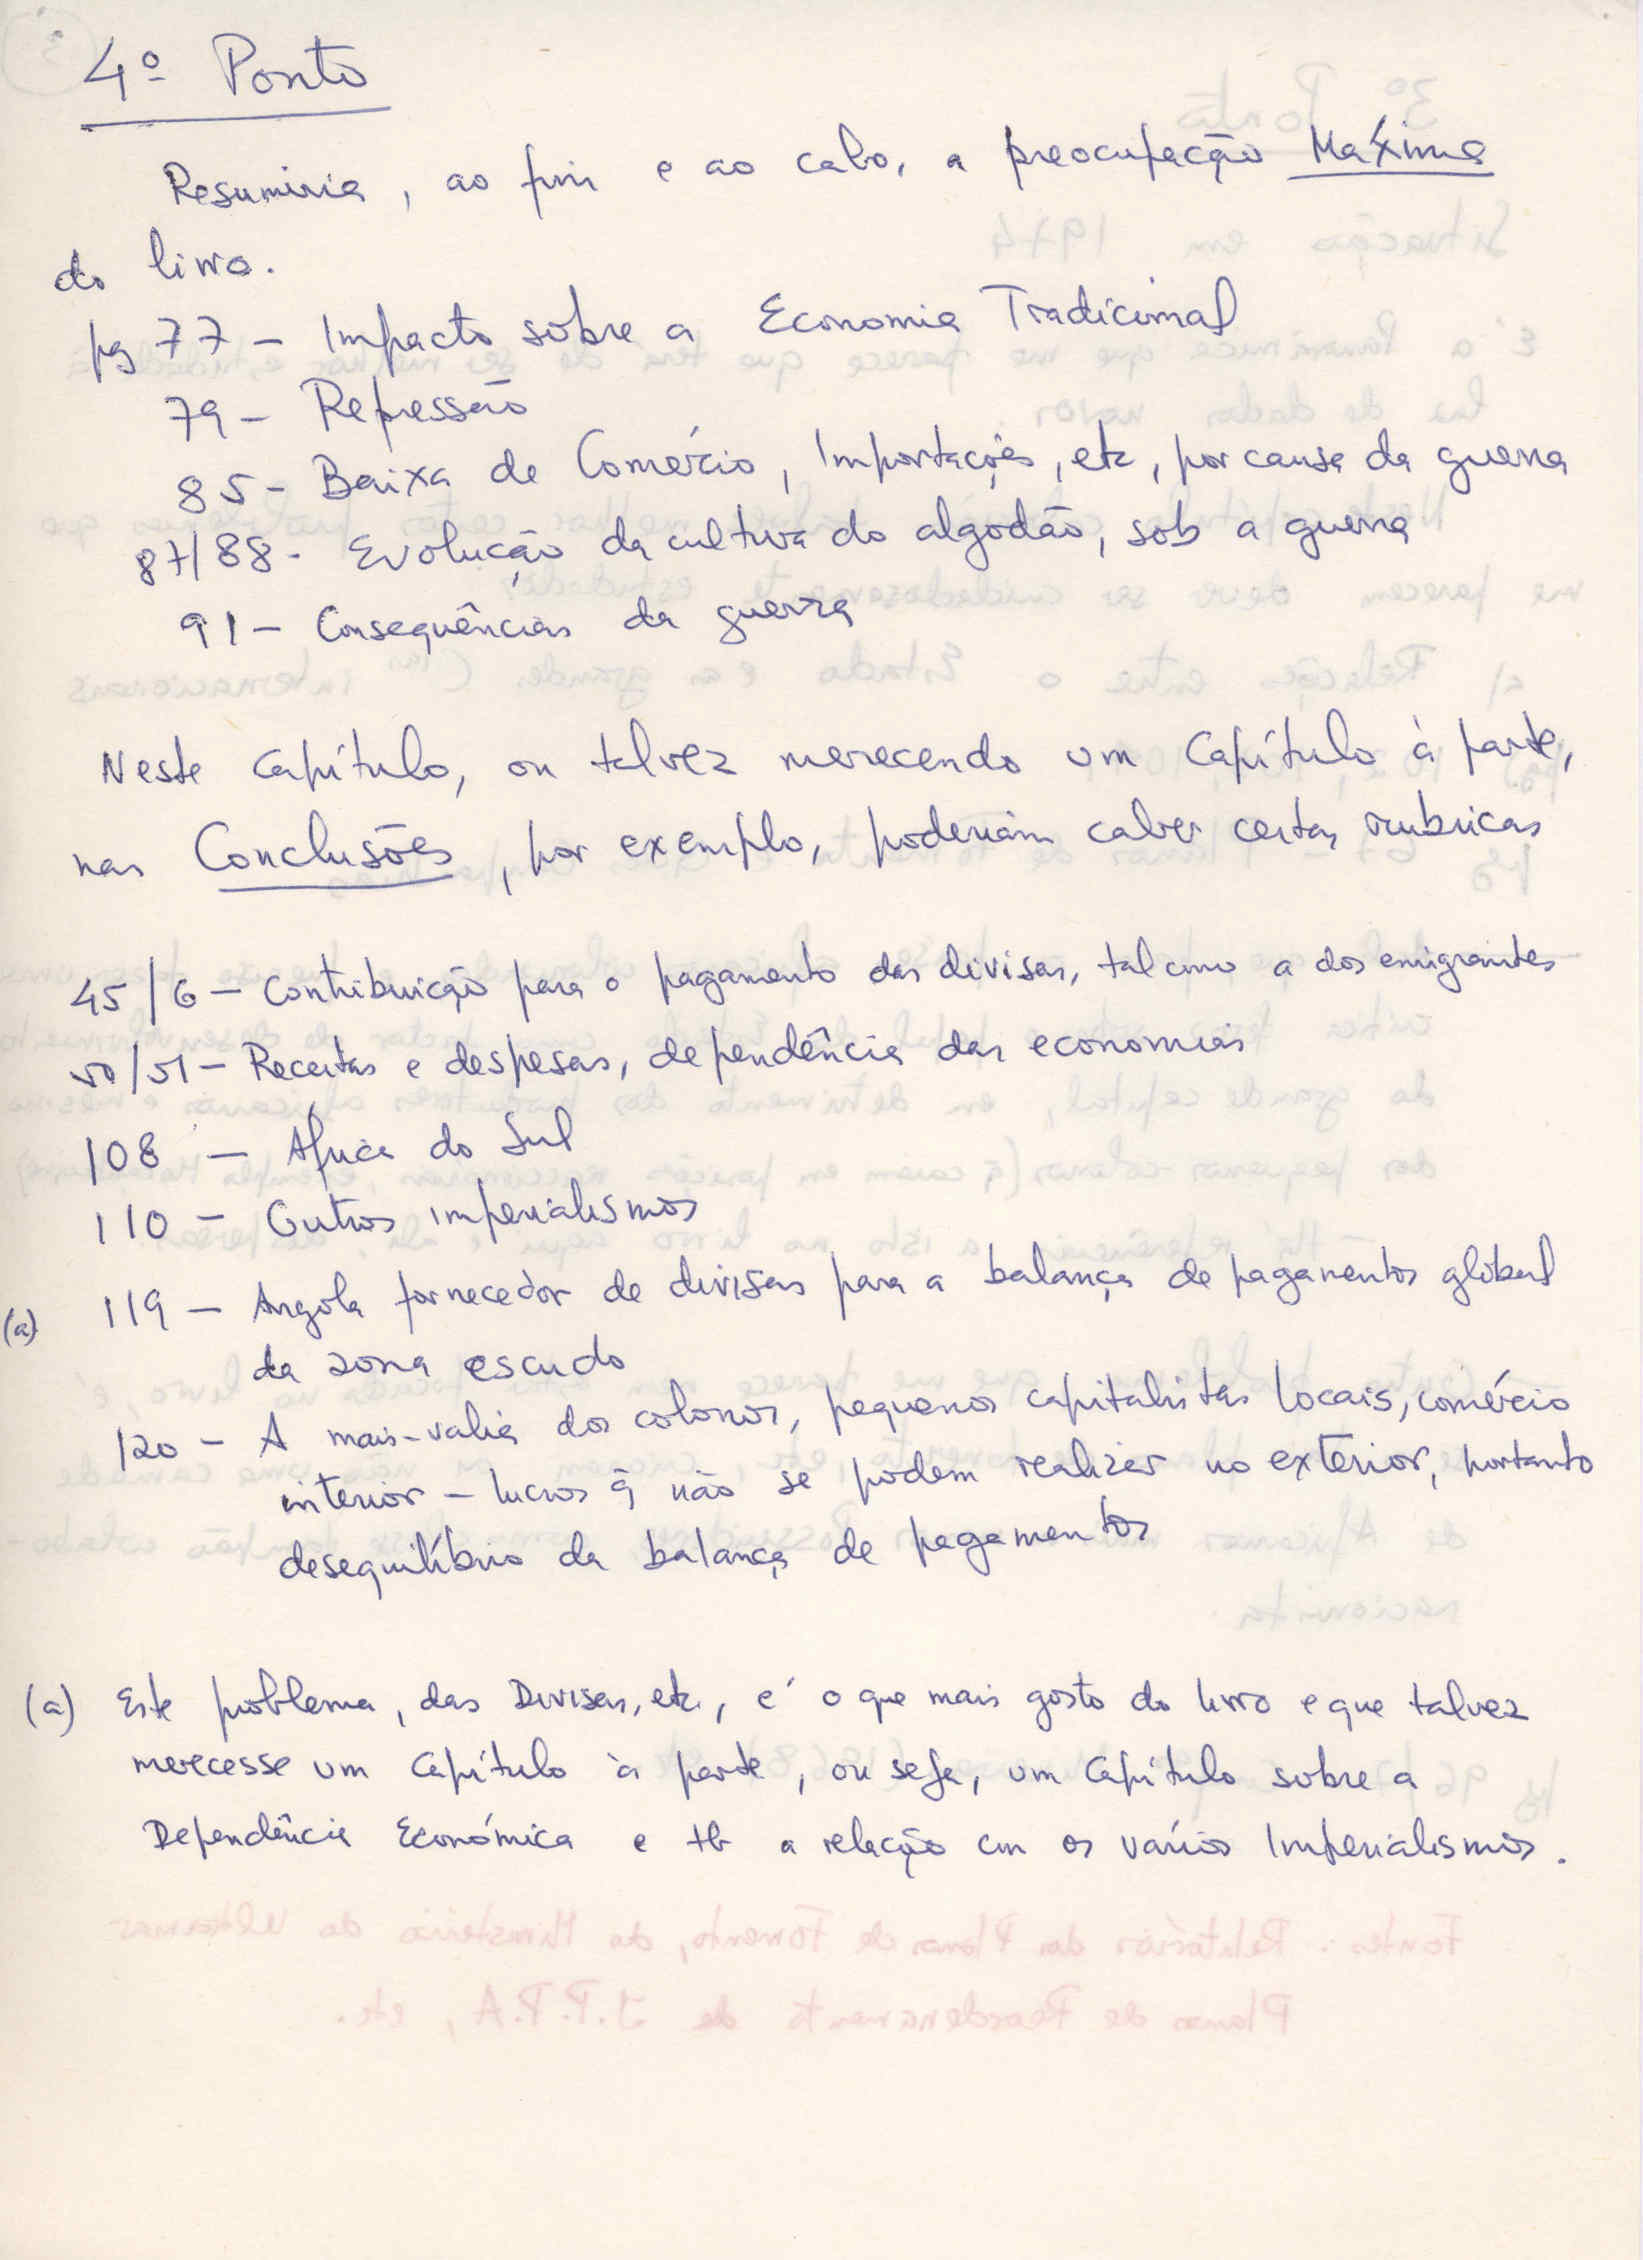 4º Ponto
Resumiria, ao fim e ao cabo, a preocupação Máxima
do livro.
pg 77 - Impacto sobre a Economia Tradicional
79 - Repressão
85 - Baixa de Comércio, Importações, etc, por causa da guerra
87/88 - Evolução da cultura do algodão, sob a guerra
91 - Consequências da guerra
Neste Capítulo, ou talvez merecendo um Capítulo à parte,
nas Conclusões, por exemplo, poderiam caber certas rubricas
45/6 - Contribuição para o pagamento das divisas, tal como a dos emigrantes
50/51 - Receitas e despesas, dependência das economias
108 - África do Sul
110 - Outros imperialismos
(a) 119 - Angola fornecedor de divisas para a balança de pagamentos global
da zona escudo
120 - A mais-valia dos colonos, pequenos capitalistas locais, comércio
interior - lucros q̃ não se podem realizar no exterior, portanto
desequilíbrio da balança de pagamentos
(a) Este problema, das Divisas, etc., é o que mais gosto do livro e que talvez
merecesse um Capítulo à parte, ou seja, um Capítulo sobre a
Dependência Económica e tb a relação com os vários Imperialismos.